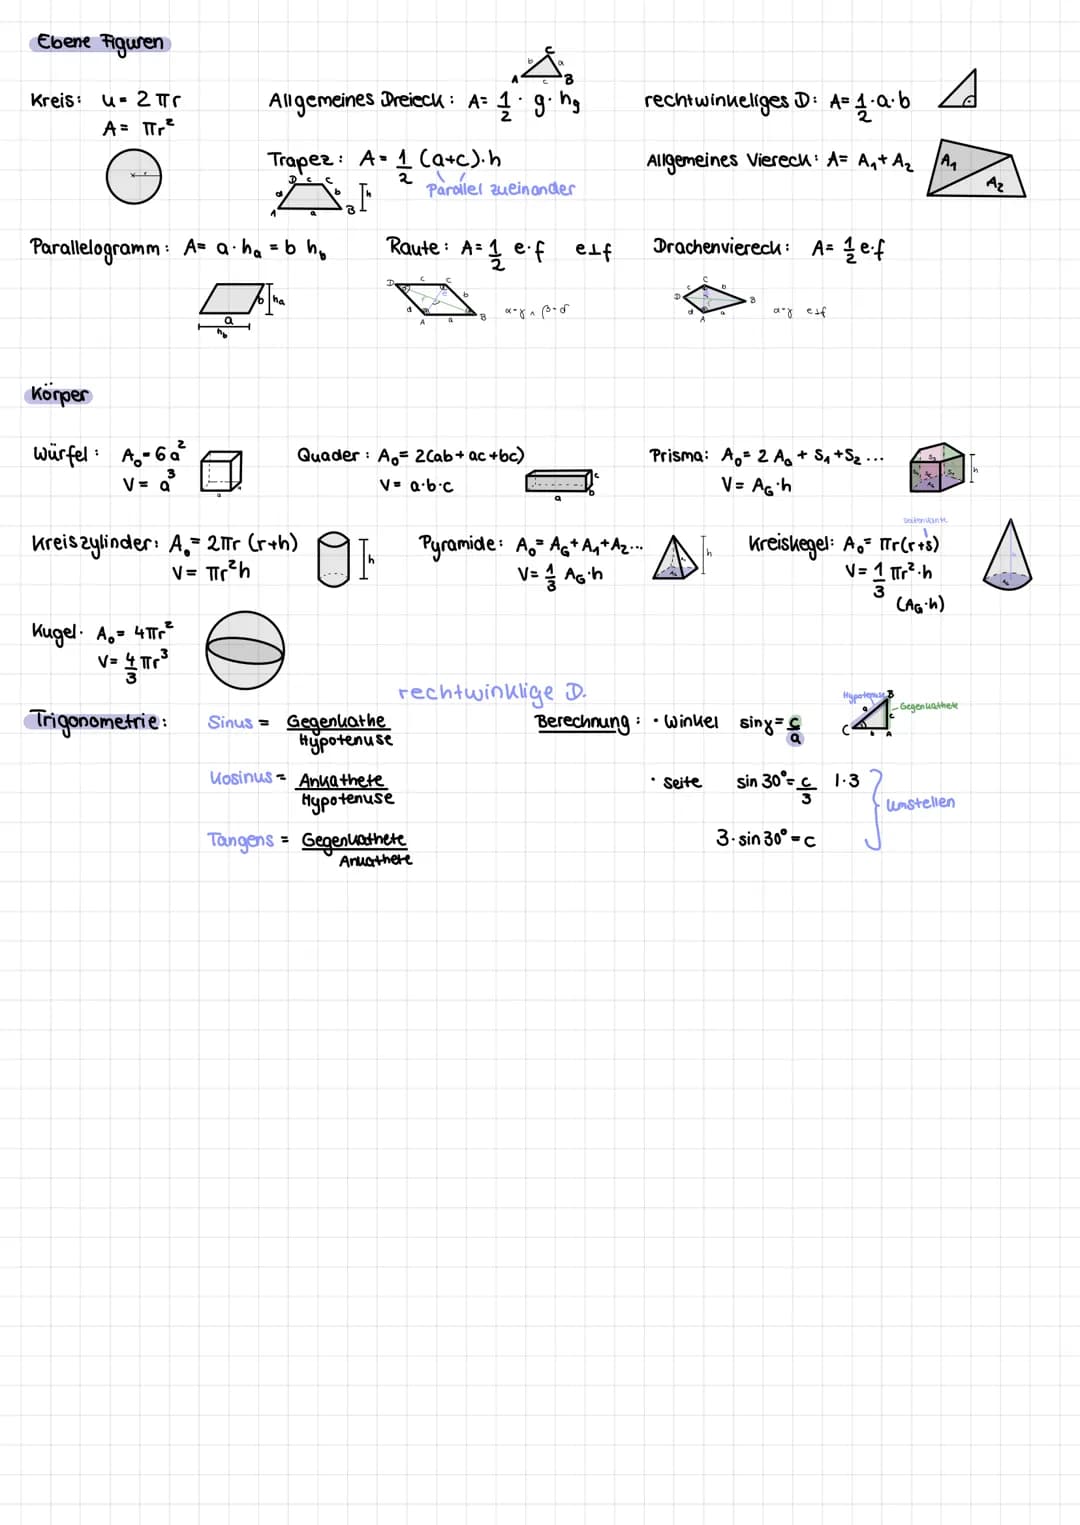 Ebene Figuren
Kreis: u = 2πr
A = πr²
Allgemeines Dreieck: A = 1/2 · g · hg
A b C a B c
rechtwinkeliges D: A = 1/2 · a · b
Trapez: A = 1/2 (a+c) · h
Parallel zueinander
D c C
d b h
A a B
Allgemeines Viereck: A = A₁ + A₂
A₁
A₂
Parallelogramm: A = a · ha = b hb
b ha
a
hb
Raute: A = 1/2 e · f e⊥f
D c C
d b
A a B
α=γ ∧ β=δ
Drachenviereck: A = 1/2 e · f
C
D B
A
α=γ e⊥f
Körper
Würfel: Ao = 6a²
V = a³
a
Quader: Ao = 2(ab + ac + bc)
V = a·b·c
c
b
a
Prisma: Ao = 2 AG + S₁ + S₂ ...
V = AG · h
h
Kreiszylinder: Ao = 2πr (r+h)
V = πr²h
h
Pyramide: Ao = AG + A₁ + A₂...
V = 1/3 AG · h
h
Seitenkante
Kreiskegel: Ao = πr(r+s)
V = 1/3 πr² · h
(AG · h)
Kugel: Ao = 4πr²
V = 4/3 πr³
rechtwinklige D.
Trigonometrie: Sinus = Gegenkathe / Hypotenuse
Kosinus = Ankathete / Hypotenuse
Tangens = Gegenkathete / Ankathete
Berechnung: · Winkel sinγ = c/a
Hypotenuse B
a c Gegenkathete
C b A
· Seite sin 30° = c/3 | · 3
3 · sin 30° = c
Umstellen